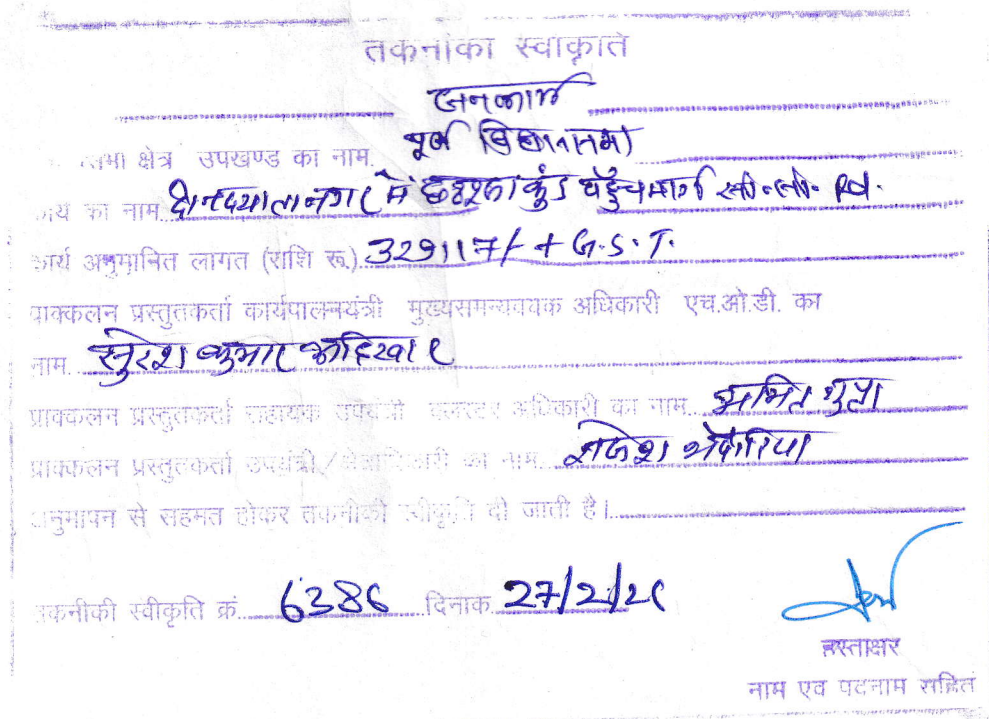 तकनीकी स्वीकृति
जनकार्य
पूर्व विधानसभा
सभा क्षेत्र उपखण्ड का नाम
कार्य का नाम दीनदयाल नगर में कुंड पहुँच मार्ग सी.सी. Rd.
कार्य अनुमानित लागत (राशि रू.) 329117/- + G.S.T.
प्राक्कलन प्रस्तुतकर्ता कार्यपालनयंत्री मुख्यसमन्यववक अधिकारी एच.ओ.डी. का
नाम सुरेश कुमार अहिरवार
प्राक्कलन प्रस्तुतकर्ता सहायक उपयंत्री क्लस्टर अधिकारी का नाम अमित गुप्ता
प्राक्कलन प्रस्तुतकर्ता उपयंत्री/ का नाम राजेश
अनुमापन से सहमत होकर तकनीकी स्वीकृति दी जाती है।
तकनीकी स्वीकृति क्रं. 6386 दिनांक 27/2/26
हस्ताक्षर
नाम एव पदनाम सहित